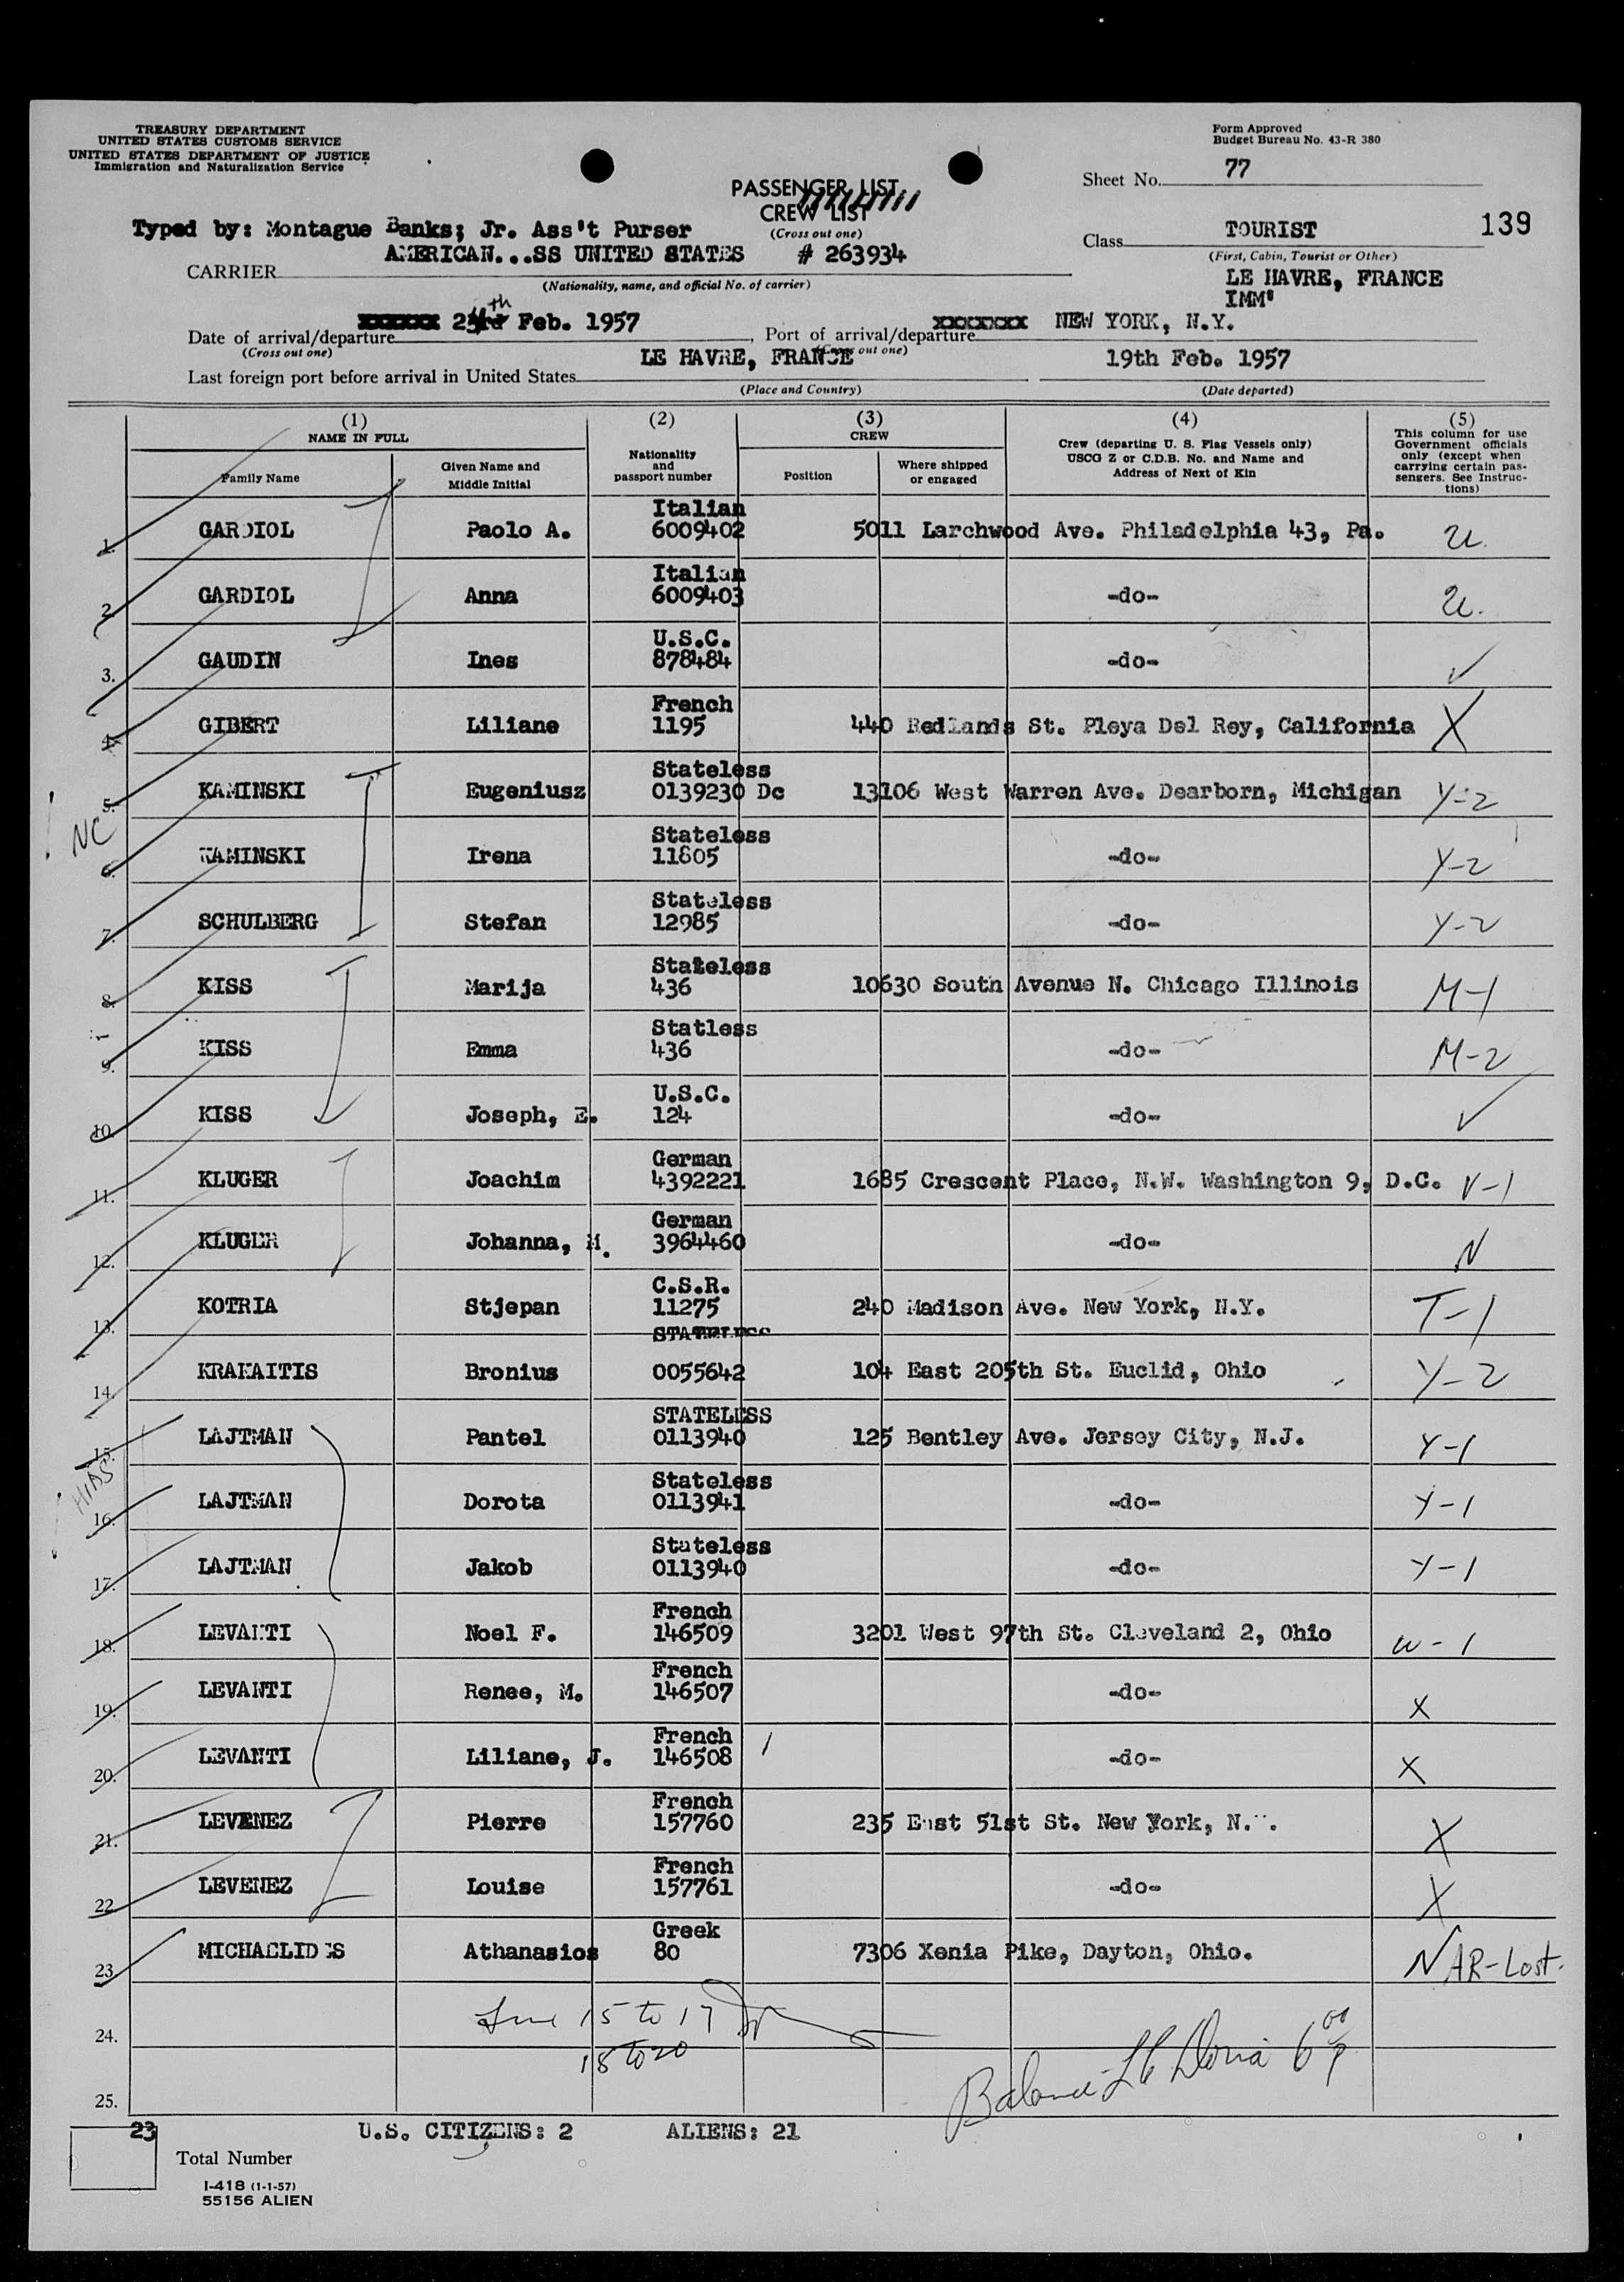 TREASURY DEPARTMENT
UNITED STATES CUSTOMS SERVICE
UNITED STATES DEPARTMENT OF JUSTICE
Immigration and Naturalization Service
Form Approved
Budget Bureau No. 43-R 380
PASSENGER LIST
CREW LIST
(Cross out one)
Sheet No. 77
Typed by: Montague Banks; Jr. Ass't Purser
Class TOURIST 139
(First, Cabin, Tourist or Other)
CARRIER AMERICAN...SS UNITED STATES # 263934
(Nationality, name, and official No. of carrier)
LE HAVRE, FRANCE
IMM'
Date of arrival/departure 24th Feb. 1957, Port of arrival/departure NEW YORK, N.Y.
(Cross out one) (Cross out one)
Last foreign port before arrival in United States LE HAVRE, FRANCE 19th Feb. 1957
(Place and Country) (Date departed)
(1) NAME IN FULL
Family Name
Given Name and Middle Initial
(2) Nationality and passport number
(3) CREW
Position
Where shipped or engaged
(4) Crew (departing U. S. Flag Vessels only) USCG Z or C.D.B. No. and Name and Address of Next of Kin
(5) This column for use Government officials only (except when carrying certain passengers. See Instructions)
1. GARDIOL Paolo A. Italian 6009402 5011 Larchwood Ave. Philadelphia 43, Pa. U.
2. GARDIOL Anna Italian 6009403 -do- U.
3. GAUDIN Ines U.S.C. 878484 -do- ✓
4. GIBERT Liliane French 1195 440 Redlands St. Pleya Del Rey, California X
NC
5. KAMINSKI Eugeniusz Stateless 0139230 Dc 13106 West Warren Ave. Dearborn, Michigan Y-2
6. KAMINSKI Irena Stateless 11805 -do- Y-2
7. SCHULBERG Stefan Stateless 12985 -do- Y-2
8. KISS Marija Stateless 436 10630 South Avenue N. Chicago Illinois M-1
9. KISS Emma Statless 436 -do- M-2
10. KISS Joseph, E. U.S.C. 124 -do- ✓
11. KLUGER Joachim German 4392221 1685 Crescent Place, N.W. Washington 9, D.C. V-1
12. KLUGER Johanna, M. German 3964460 -do- N
13. KOTRIA Stjepan C.S.R. 11275 240 Madison Ave. New York, N.Y. T-1
14. KRAKAITIS Bronius STATELESS 0055642 104 East 205th St. Euclid, Ohio Y-2
15. LAJTMAN Pantel STATELESS 0113940 125 Bentley Ave. Jersey City, N.J. Y-1
HIAS
16. LAJTMAN Dorota Stateless 0113941 -do- Y-1
17. LAJTMAN Jakob Stateless 0113940 -do- Y-1
18. LEVANTI Noel F. French 146509 3201 West 97th St. Cleveland 2, Ohio W-1
19. LEVANTI Renee, M. French 146507 -do- X
20. LEVANTI Liliane, J. French 146508 -do- X
21. LEVENEZ Pierre French 157760 235 East 51st St. New York, N. X
22. LEVENEZ Louise French 157761 -do- X
23. MICHAELIDES Athanasios Greek 80 7306 Xenia Pike, Dayton, Ohio. N AR-Lost.
24. 15 to 17
18 to 20
25. Balance 6 00 P
23 U.S. CITIZENS: 2 ALIENS: 21
Total Number
I-418 (1-1-57)
55156 ALIEN